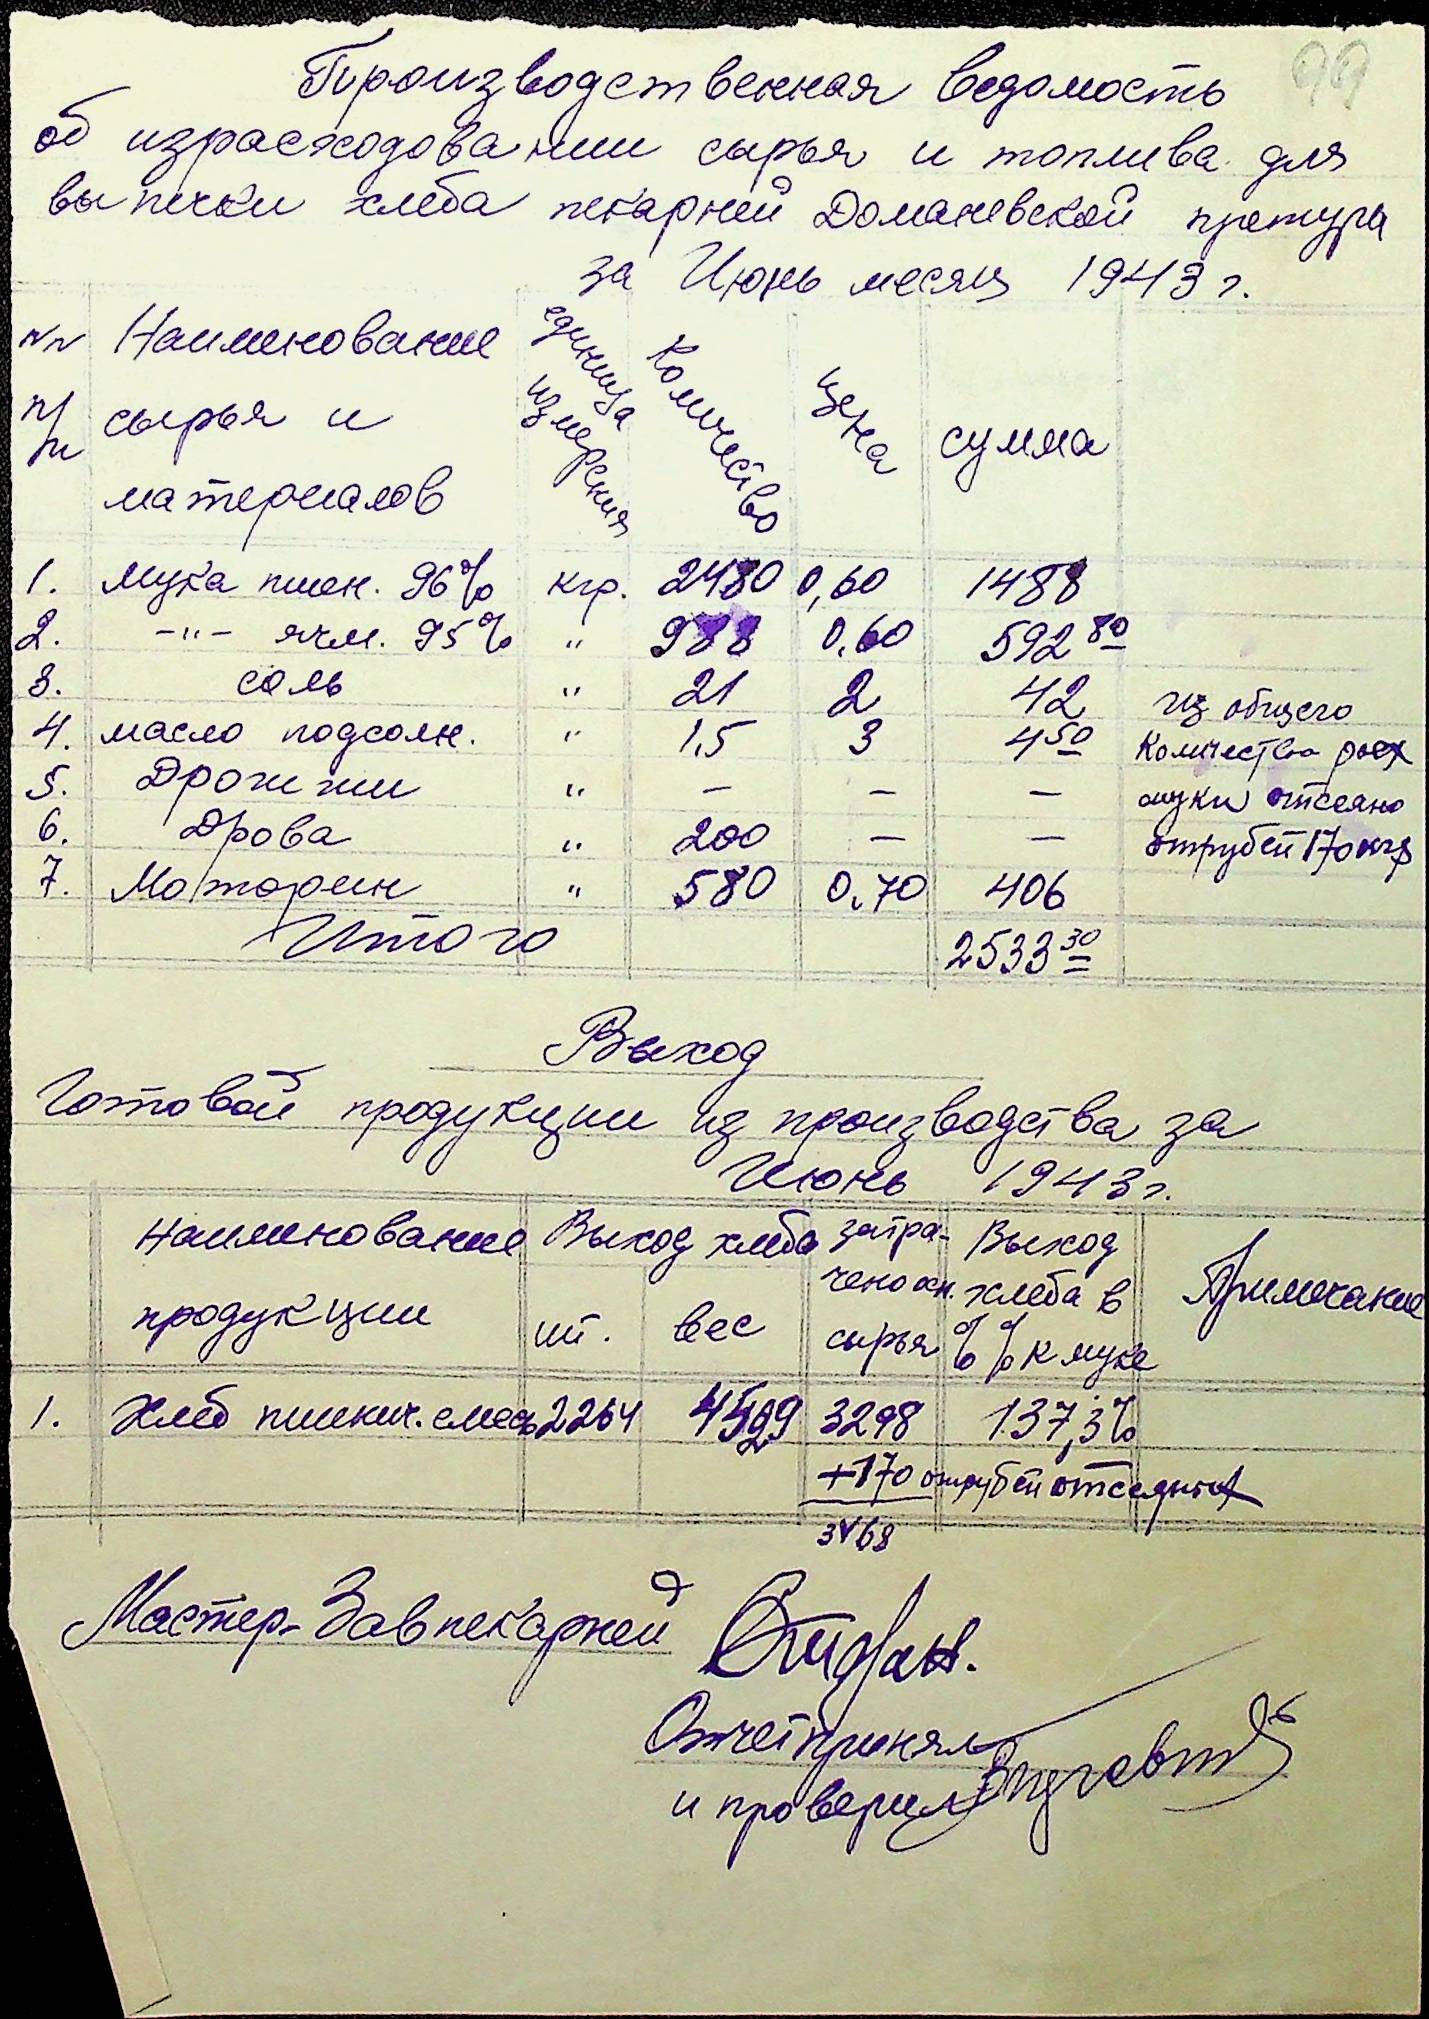 99
Производственная ведомость
об израсходовании сырья и топлива для
выпечки хлеба пекарней Доманевской претура
за Июнь месяц 1943 г.
NN Наименование единица Количество цена сумма
п/п сырья и измерения
материалов
1. мука пшен. 96% кгр. 2480 0,60 1488
2. -"- ячм. 95% " 988 0.60 592 80
3. соль " 21 2 42 из общего
4. масло подсолн. " 1,5 3 4 50 количества расх
5. Дрожжи " — — — муки отсеяно
6. Дрова " 200 — — отрубей 170 кгр
7. Моторин " 580 0.70 406
Итого 2533 30
Выход
Готовой продукции из производства за
Июнь 1943 г.
Наименование Выход хлеба затра- Выход Примечание
чено осн. хлеба в
продукции шт. вес сырья %% к муке
1. Хлеб пшенич. смесь 2264 4529 3298 137,3%
+170 отрубей отсеяных
3468
Мастер-Завпекарней
Отчет принял
и проверил